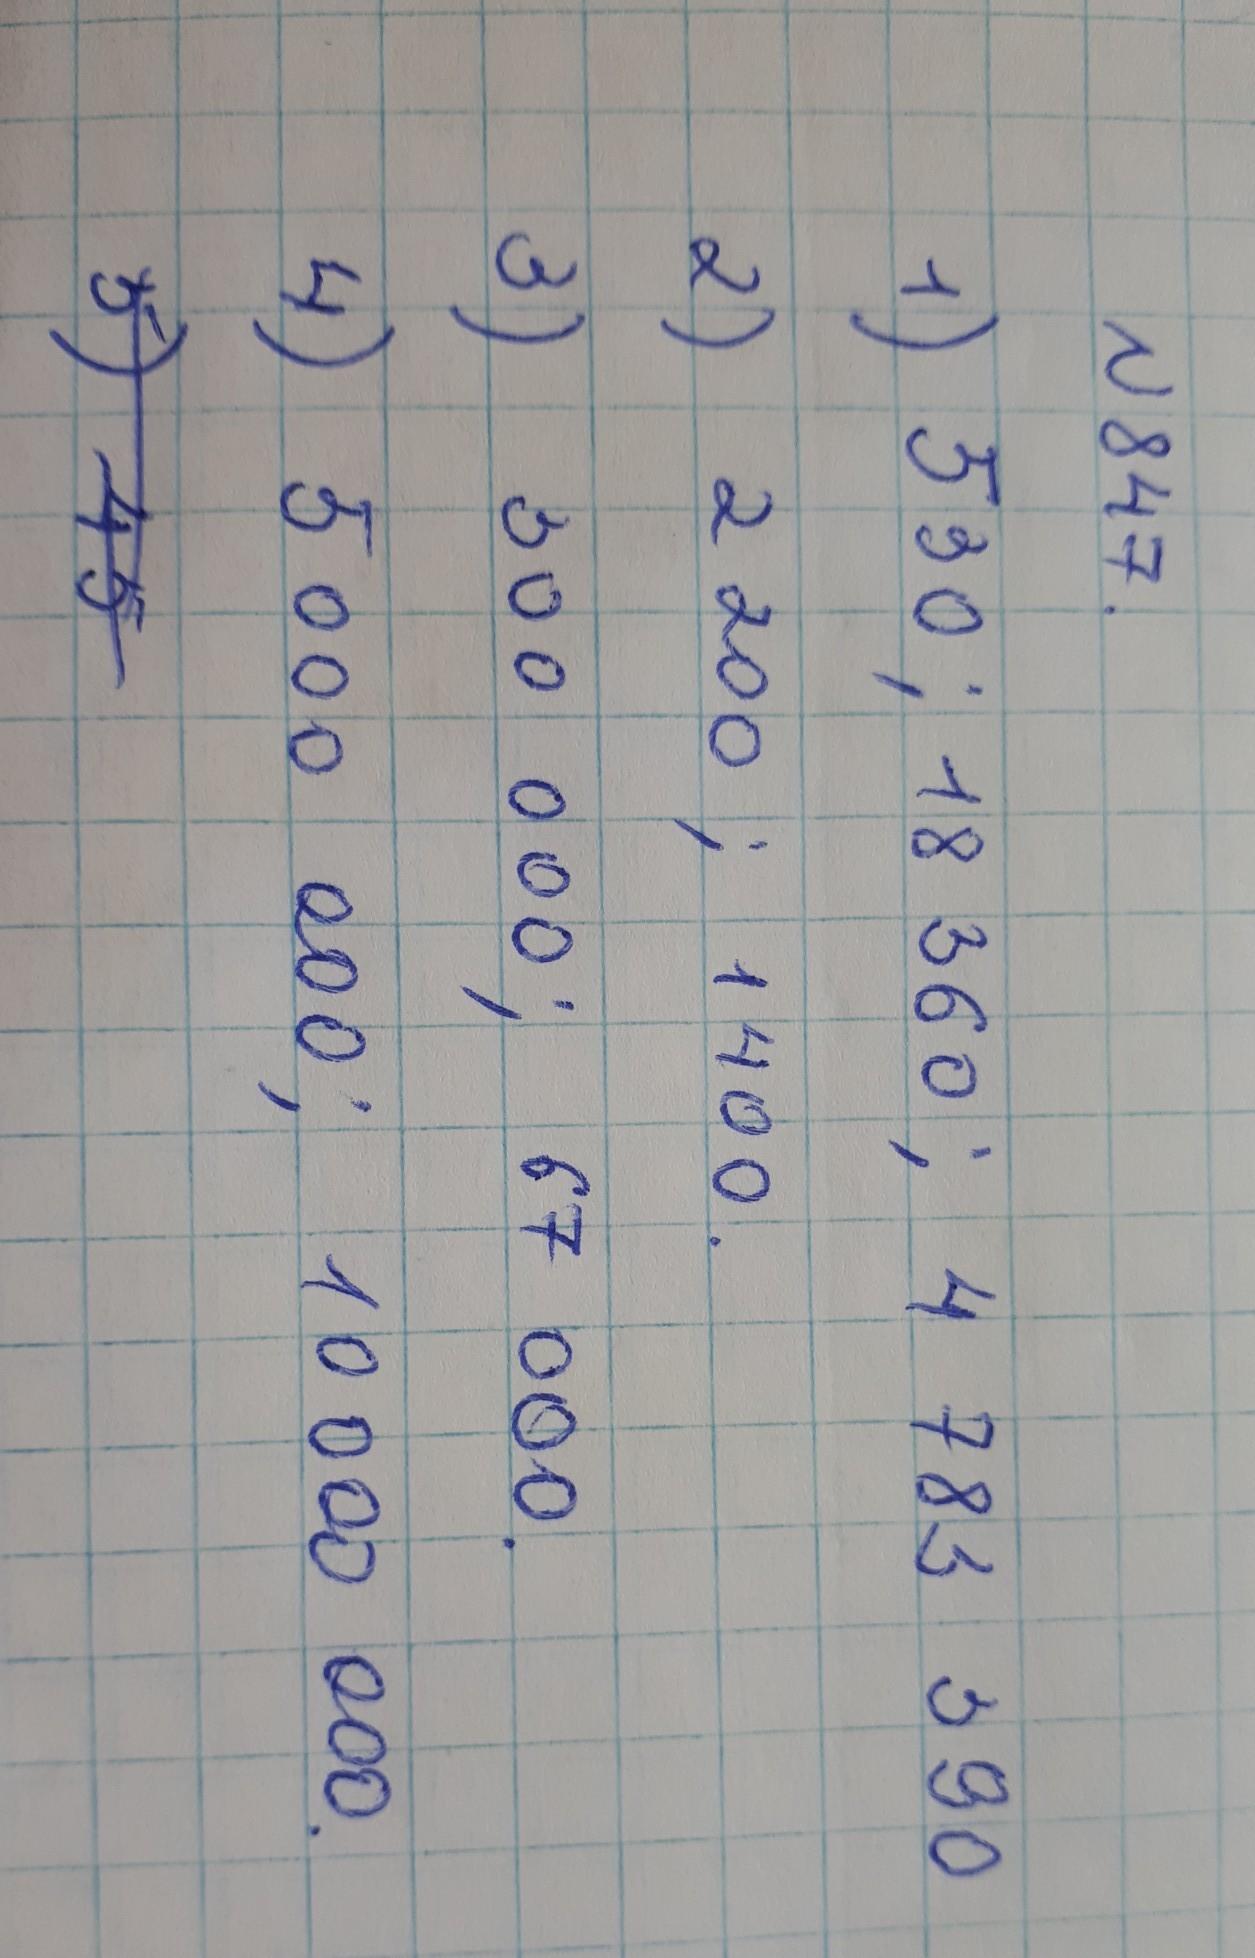 N 847.
1) 530; 18 360; 4 783 390
2) 2 200; 1400.
3) 300 000; 67 000.
4) 5 000 000; 10 000 000.
5) 45